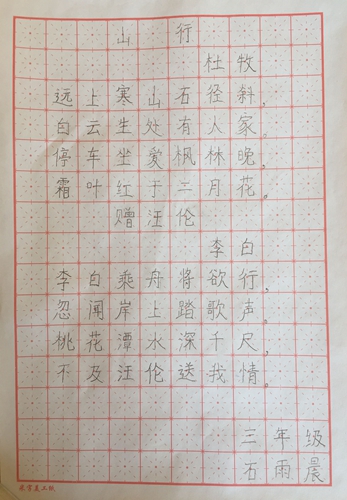 山行
杜牧
远上寒山石径斜，
白云生处有人家。
停车坐爱枫林晚，
霜叶红于二月花。
赠汪伦
李白
李白乘舟将欲行，
忽闻岸上踏歌声。
桃花潭水深千尺，
不及汪伦送我情。
三年级
石雨晨